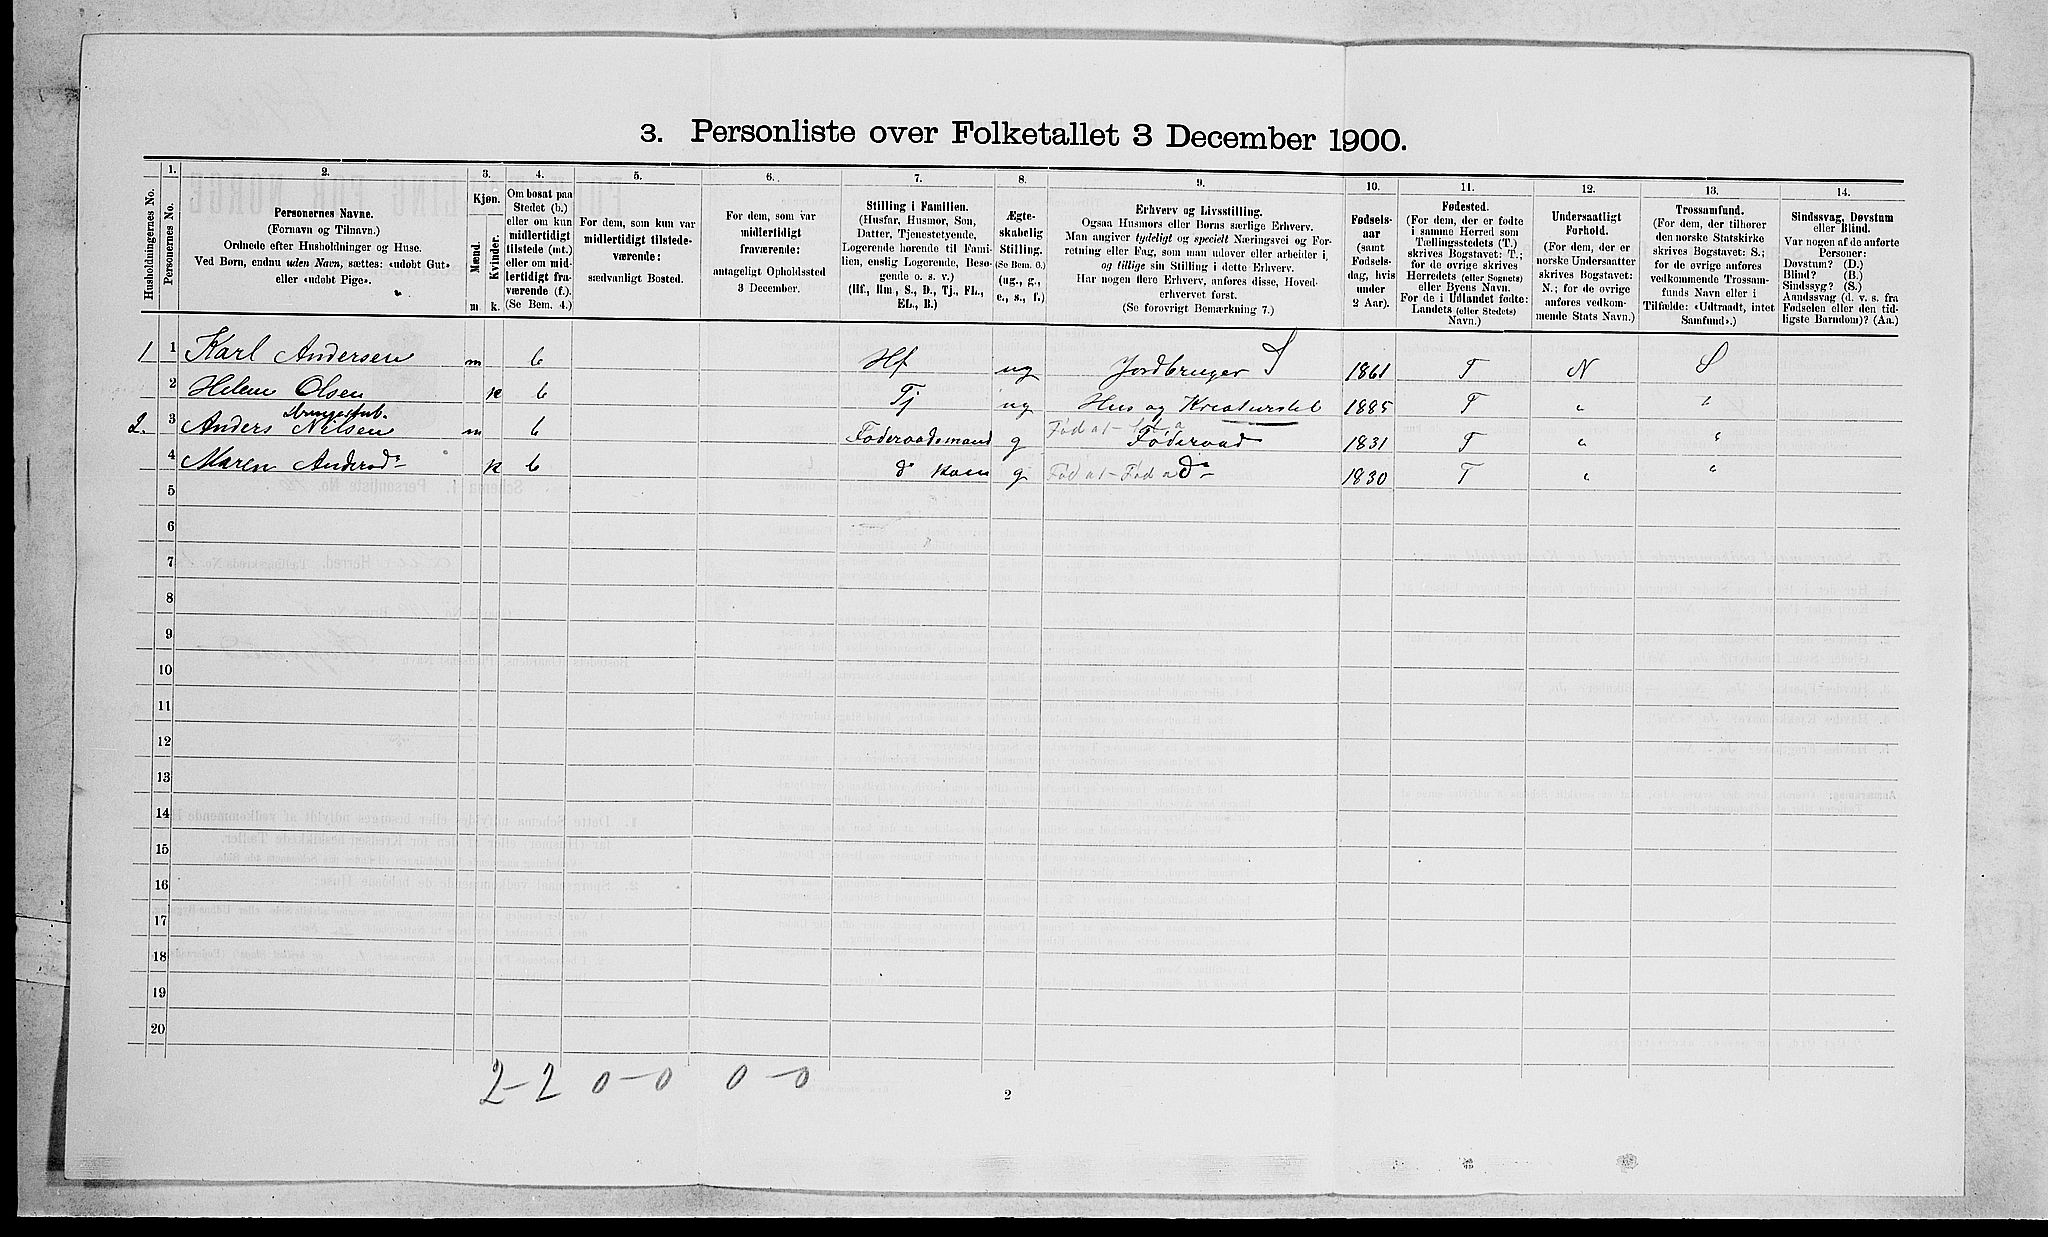 3. Personliste over Folketallet 3 December 1900.
Husholdningernes No.
1.
Personernes No.
2.
Personernes Navne.
(Fornavn og Tilnavn.)
Ordnede efter Husholdninger og Huse.
Ved Børn, endnu uden Navn, sættes: «udøbt Gut»
eller «udøbt Pige».
3.
Kjøn.
Mænd.
Kvinder.
m.
k.
4.
Om bosat paa
Stedet (b.)
eller om kun
midlertidigt
tilstede (mt.)
eller om mid-
lertidigt fra-
værende (f.).
(Se Bem. 4.)
5.
For dem, som kun var
midlertidigt tilstede-
værende:
sædvanligt Bosted.
6.
For dem, som var
midlertidigt
fraværende:
antageligt Opholdssted
3 December.
7.
Stilling i Familien.
(Husfar, Husmor, Søn,
Datter, Tjenestetyende,
Logerende hørende til Fami-
lien, enslig Logerende, Besø-
gende o. s. v.)
(Hf., Hm., S., D., Tj., FL.,
EL., B.)
8.
Ægte-
skabelig
Stilling.
(Se Bem. 6.)
(ug., g.,
e., s., f.)
9.
Erhverv og Livsstilling.
Ogsaa Husmors eller Børns særlige Erhverv.
Man angiver tydeligt og specielt Næringsvei og For-
retning eller Fag, som man udøver eller arbeider i,
og tillige sin Stilling i dette Erhverv.
Har nogen flere Erhverv, anføres disse, Hoved-
erhvervet først.
(Se forøvrigt Bemærkning 7.)
10.
Fødsels-
aar
(samt
Fødsels-
dag, hvis
under
2 Aar).
11.
Fødested.
(For dem, der er fødte
i samme Herred som
Tællingsstedets (T.)
skrives Bogstavet: T.;
for de øvrige skrives
Herredets (eller Sognets)
eller Byens Navn.
For de i Udlandet fødte:
Landets (eller Stedets)
Navn.)
12.
Undersaatligt
Forhold.
(For dem, der er
norske Undersaatter
skrives Bogstavet:
N.; for de øvrige
anføres vedkom-
mende Stats Navn.)
13.
Trossamfund.
(For dem, der tilhører
den norske Statskirke
skrives Bogstavet: S.;
for de øvrige anføres
vedkommende Trossam-
funds Navn eller i
Tilfælde: «Udtraadt, intet
Samfund».)
14.
Sindssvag, Døvstum
eller Blind.
Var nogen af de anførte
Personer:
Døvstum? (D.)
Blind? (B.)
Sindssyg? (S.)
Aandssvag (d. v. s. fra
Fødselen eller den tid-
ligste Barndom)? (Aa.)
1 1 Karl Andersen m b Hf ug Jordbruger S 1861 T N S
2 Helene Olsen k b Tj ug Hus og Kreaturstel 1885 T " "
2. 3 Anders Nilsen m b Føderaadsmand g Føderaad 1831 T " "
4 Maren Andersd- k b do kone g do- 1830 T " "
5
6
7
8
9
10
11
12
13
14
15
16
17
18
19
20
2-2 0-0 0-0
2